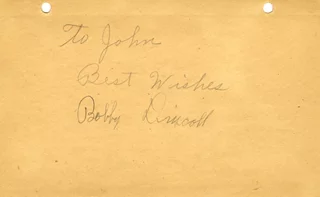 To John
Best Wishes
Bobby Driscoll